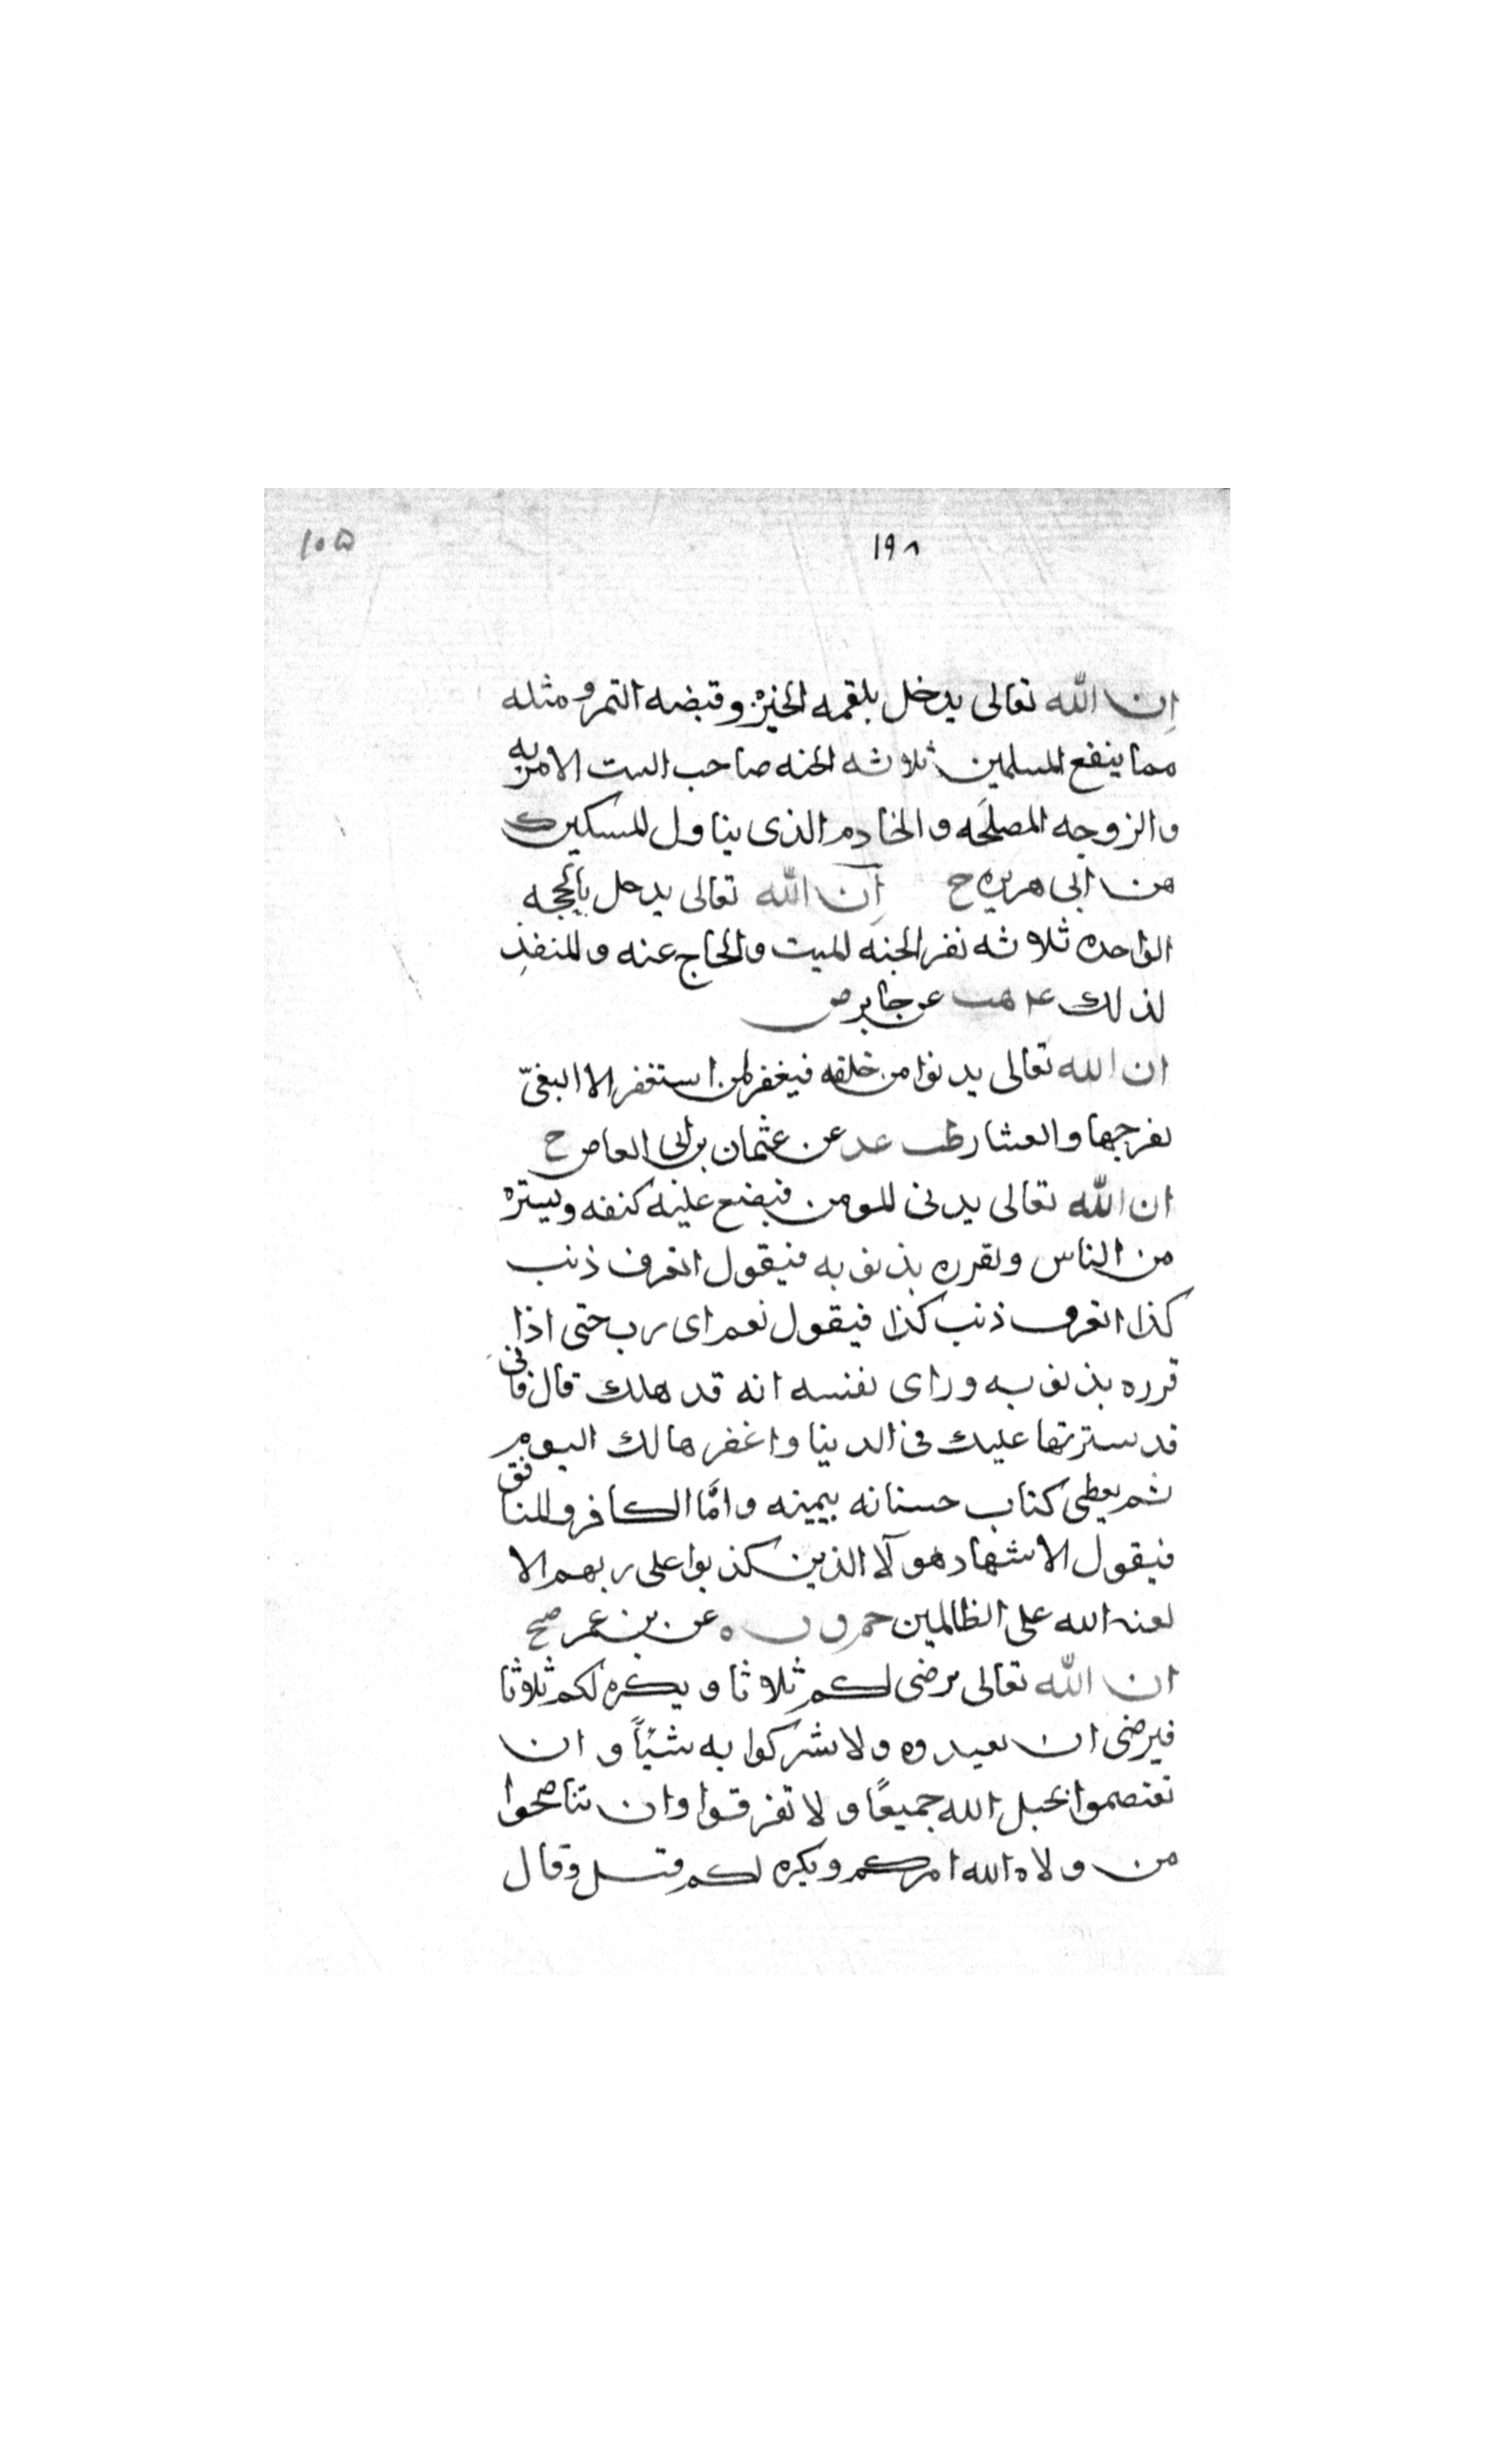 ١٩٨
١٠٥
ان الله تعالى يدخل بلقمه الخبز وقبضه التمر ومثله
مما ينفع المسلمين ثلاثه الجنه صاحب البيت الامر به
والزوجه المصلحه والخادم الذى يناول المسكين ك
عن ابى هريره ح ان الله تعالى يدخل بالحجه
الواحده ثلاثه نفر الجنه الميت والحاج عنه والمنفذ
لذلك عد هب عن جابر ض
ان الله تعالى يدنوا من خلقه فيغفر لمن استغفر الا البغىّ
بفرجها والعشار طب عد عن عثمان بن ابى العاص ح
ان الله تعالى يدنى المومن فيضع عليه كنفه ويستره
من الناس ويقرره بذنوبه فيقول اتعرف ذنب
كذا اتعرف ذنب كذا فيقول نعم اى رب حتى اذا
قرره بذنوبه وراى بفنسه انه قد هلك قال فانى
قد سترتها عليك فى الدنيا واغفرها لك اليوم
ثم يعطى كتاب حسناته بيمينه وامّا الكافر والمنافق
فيقول الاشهاد هولآ الذين كذبوا على ربهم الا
لعنه الله على الظالمين حم ق ن ه عن بن عمر صح
ان الله تعالى يرضى لكم ثلاثا ويكره لكم ثلاثا
فيرضى ان تعبدوه ولا تشركوا به شيًا وان
تعتصموا بحبل الله جميعًا ولا تفرقوا وان تناصحوا
من ولاه الله امركم ويكره لكم قيل وقال